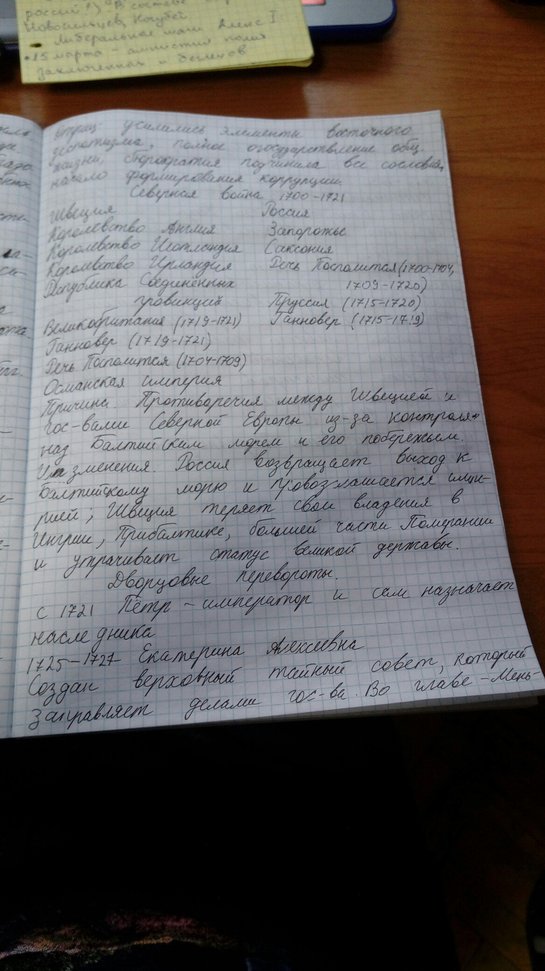 россий
Новосильцев, Кочубей
либеральные Алекс I
15 марта - амнистия полит
заключенных и беженов
отриц: усилились элементы восточного
деспотизма, полное огосударствление общ.
жизни, бюрократия подчинила все сословия,
начало формирования коррупции.
Северная война 1700-1721
Швеция Россия
Королевство Англия Запорожье
Королевство Шотландия Саксония
Королевство Ирландия Речь Посполитая (1700-1704,
Республика Соединённых 1709-1720)
провинций Пруссия (1715-1720)
Великобритания (1719-1721) Ганновер (1715-1719)
Ганновер (1719-1721)
Речь Посполитая (1704-1709)
Османская империя
Причина Противоречия между Швецией и
гос-вами Северной Европы из-за контроля
над Балтийским морем и его побережьем.
Изменения. Россия возвращает выход к
Балтийскому морю и провозглашается импе-
рией; Швеция теряет свои владения в
Ингрии, Прибалтике, большей части Померании
и утрачивает статус великой державы.
Дворцовые перевороты.
С 1721 Пётр - император и сам назначает
наследника
1725-1727 Екатерина Алексивна
Создан верховный тайный совет, который
заправляет делами гос-ва. Во главе - Мень-